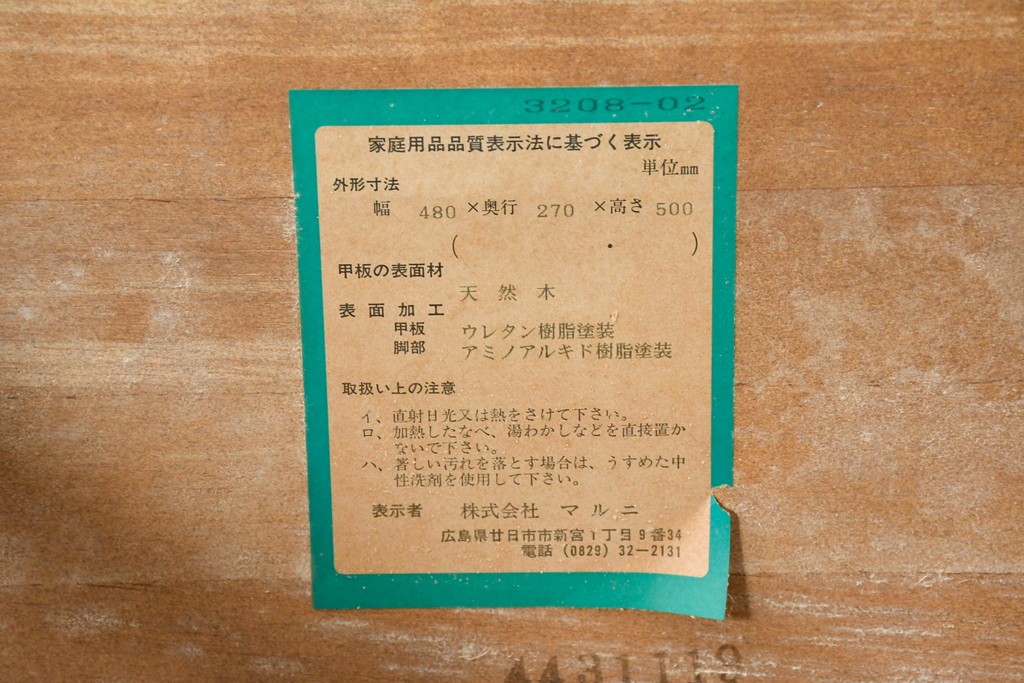 3208-02
家庭用品品質表示法に基づく表示
単位mm
外形寸法
幅 480 ×奥行 270 ×高さ 500
( ・ )
甲板の表面材
天然木
表面加工
甲板 ウレタン樹脂塗装
脚部 アミノアルキド樹脂塗装
取扱い上の注意
イ、直射日光又は熱をさけて下さい。
ロ、加熱したなべ、湯わかしなどを直接置か
ないで下さい。
ハ、著しい汚れを落とす場合は、うすめた中
性洗剤を使用して下さい。
表示者 株式会社 マルニ
広島県廿日市市新宮1丁目9番34
電話 (0829) 32-2131